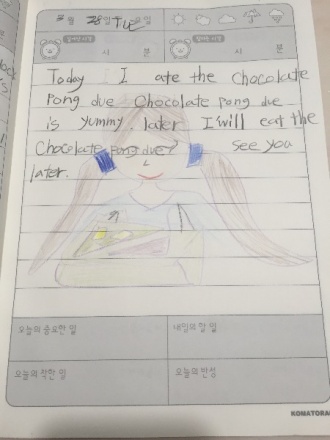 3월 28일 Tue요일
일어난 시각
잠자는 시각
시 분
시 분
Today I ate the Chocolate
Pong due Chocolate pong due
is yummy. later I will eat the
Chocolate pong due? See you
later.
오늘의 중요한 일
내일의 할 일
오늘의 착한 일
오늘의 반성